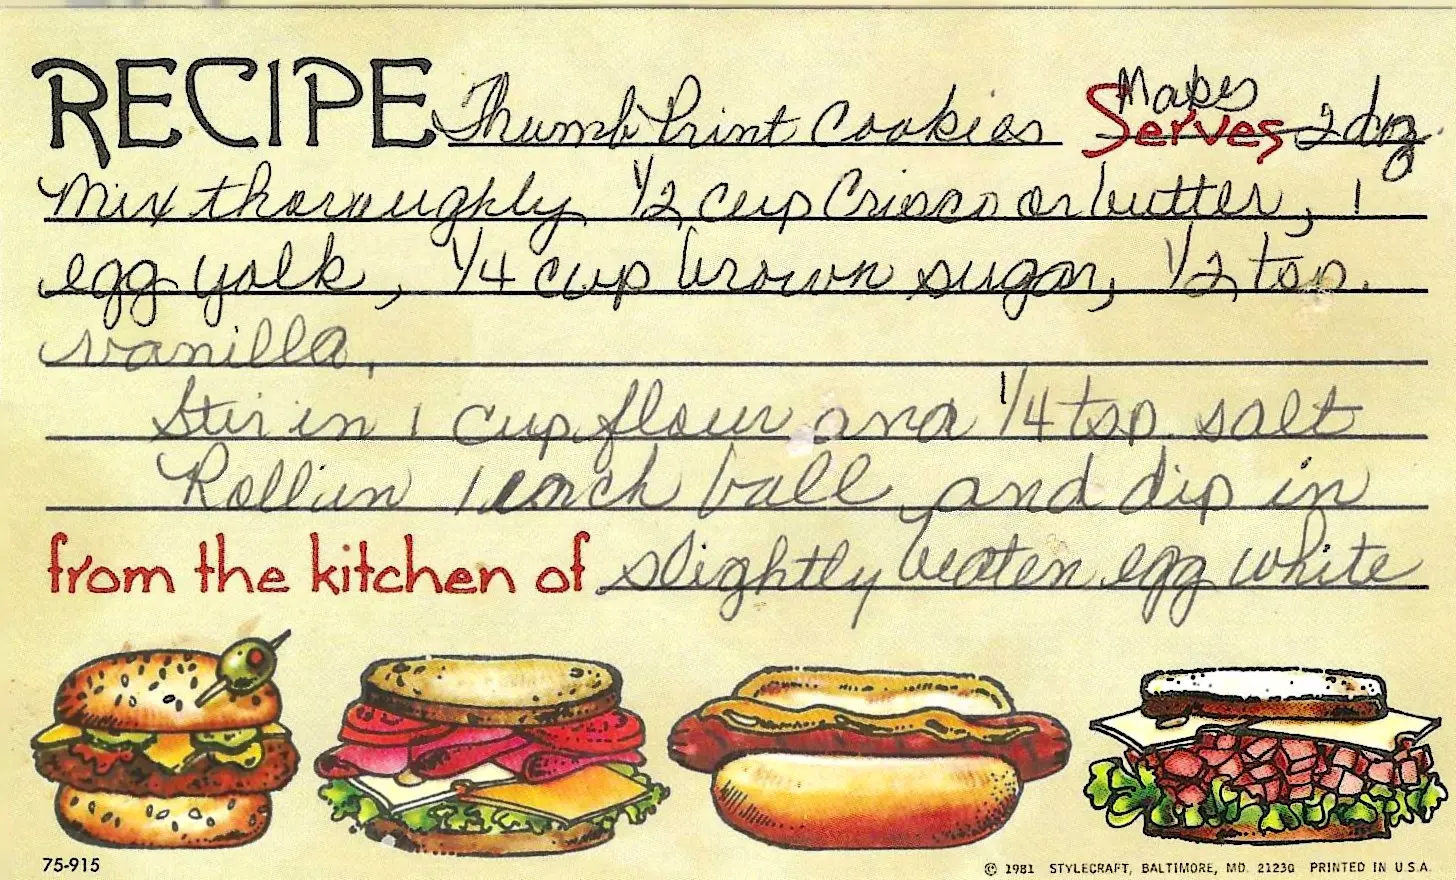 RECIPE Thumb Print Cookies Makes Serves 2 doz.
Mix thoroughly 1/2 cup Crisco or butter, 1
egg yolk, 1/4 cup brown sugar, 1/2 tsp.
vanilla.
Stir in 1 cup flour and 1/4 tsp. salt
Roll in 1 inch ball and dip in
from the kitchen of slightly beaten egg white
75-915
© 1981 STYLECRAFT, BALTIMORE, MD. 21230 PRINTED IN U.S.A.